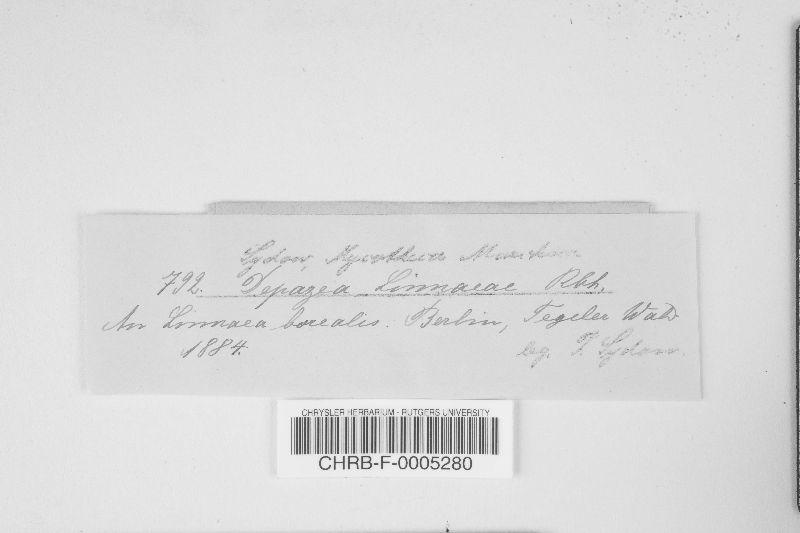 Sydow, Mycotheca Marchica
792. Depazea Linnaeae Rbh.
An Linnaea borealis. Berlin, Tegeler Wald
1884. leg. P. Sydow.
CHRYSLER HERBARIUM - RUTGERS UNIVERSITY
CHRB-F-0005280